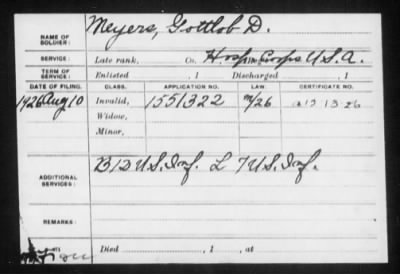 NAME OF SOLDIER: Meyers, Gottlob D.
SERVICE: Late rank, Co. Hosp Corps U.S.A.
TERM OF SERVICE: Enlisted , 1 Discharged , 1
DATE OF FILING. CLASS. APPLICATION NO. LAW. CERTIFICATE NO.
1926 Aug 10 Invalid, 1551322
Widow,
Minor,
ADDITIONAL SERVICES: B 12 U.S. Inf. L 7 U.S. Inf.
REMARKS:
Died , 1 , at